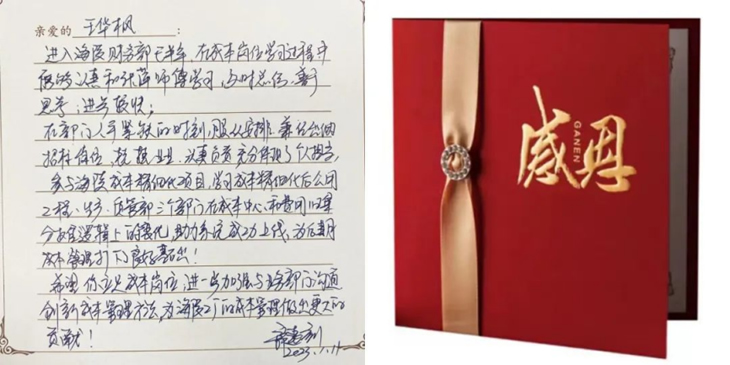 亲爱的 王华枫 :
进入海陵财务部七半年,在成本岗位学习过程中
能够认真和张萍师傅学习,及时总结、善于
思考,进步很快;
在部门人手紧缺的时刻,服从安排,兼任
招标岗位,兢兢业业,认真负责充分体现了个人担当,
参与海陵成本精细化项目,学习成本精细化后公司
工程、生产、质管部三个部门在成本中心和费用归集
分配逻辑上的变化,助力系统成功上线,为后期
成本管理打下良好基础!
希望你立足成本岗位,进一步加强与各部门沟通
创新成本管理方法,为海陵工厂的成本管理做出更大的
贡献!
2023.1.11
感恩
GANEN